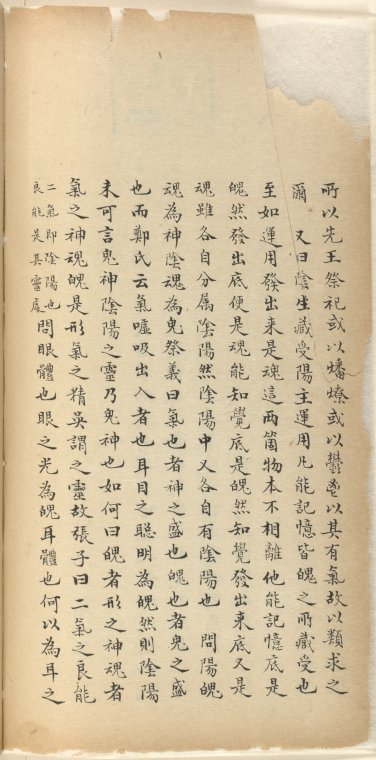 所以先王祭祀或以燔燎或以鬱鬯以其有氣故以類求之
爾　又曰陰生藏受陽主運用凡能記憶皆魄之所藏受也
至如運用發出來是魂這两箇物本不相離他能記憶底是
魄然發出底便是魂能知覺底是魄然知覺發出來底又是
魂雖各自分属陰陽然陰陽中又各自有陰陽也　問陽魄
魂為神陰魂為鬼祭義曰氣也者神之盛也魄也者鬼之盛
也而鄭氏云氣噓吸出入者也耳目之聰明為魄然則陰陽
未可言鬼神陰陽之靈乃鬼神也如何曰魄者形之神魂者
氣之神魂魄是形氣之精英謂之靈故張子曰二氣之良能
二氣即陰陽也
良能是其靈處
問眼體也眼之光為魄耳體也何以為耳之